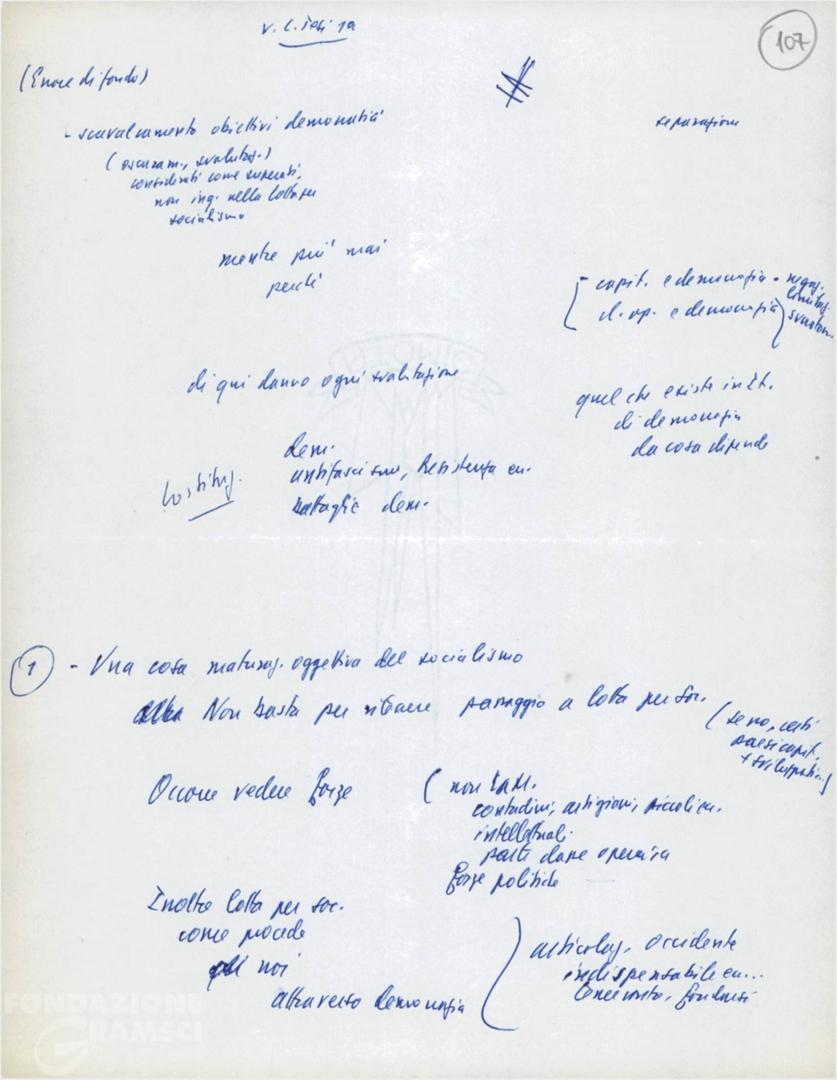 107
(Errore di fondo)
separazione
- scavalcamento obiettivi democratici
(oscuram., svalutaz.)
considerati come superati,
non ing. nella lotta per
socialismo
mentre più mai
perché
- capit. e democrazia - negaz.
limitaz.
cl. op. e democrazia
di qui danno ogni svalutazione
quel che esiste in It.
di democrazia
da cosa dipende
dem.
antifascismo, Resistenza
Costituz.
battaglie dem.
1 - Una cosa maturaz. oggettiva del socialismo
Non basta per ritenere passaggio a lotta per soc.
(se no, certi
paesi capit.
+ sviluppati)
Occorre vedere forze
(non
contadini, artigiani,
intellettuali
parte classe operaia
forze politiche
Inoltre lotta per soc.
come procede
noi
attraverso democrazia
articolaz. occidente
indispensabile
FONDAZIONE
GRAMSCI